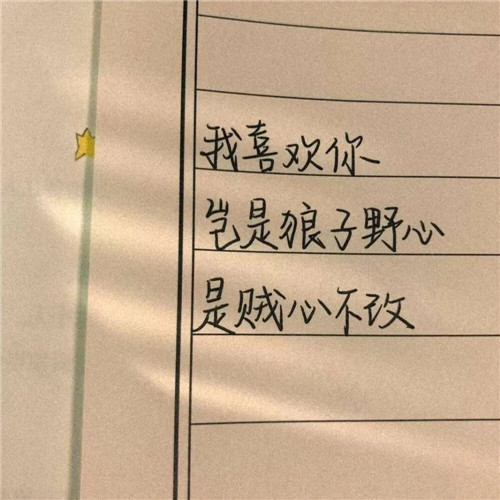 我喜欢你
岂是狼子野心
是贼心不改